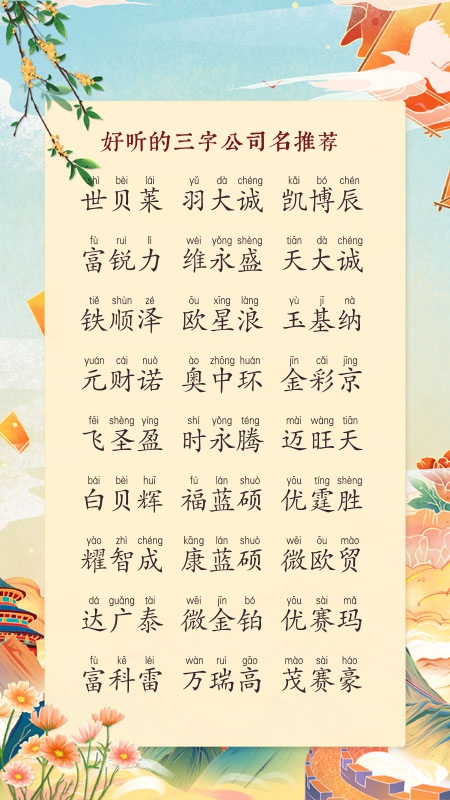 好听的三字公司名推荐
shì bèi lái yǔ dà chéng kǎi bó chén
世贝莱 羽大诚 凯博辰
fù ruì lì wéi yǒng shèng tiān dà chéng
富锐力 维永盛 天大诚
tiě shùn zé ōu xīng làng yù jī nà
铁顺泽 欧星浪 玉基纳
yuán cái nuò ào zhōng huán jīn cǎi jīng
元财诺 奥中环 金彩京
fēi shèng yíng shí yǒng téng mài wàng tiān
飞圣盈 时永腾 迈旺天
bái bèi huī fú lán shuò yōu tíng shèng
白贝辉 福蓝硕 优霆胜
yào zhì chéng kāng lán shuò wēi ōu mào
耀智成 康蓝硕 微欧贸
dá guǎng tài wēi jīn bó yōu sài mǎ
达广泰 微金铂 优赛玛
fù kē léi wàn ruì gāo mào sài háo
富科雷 万瑞高 茂赛豪